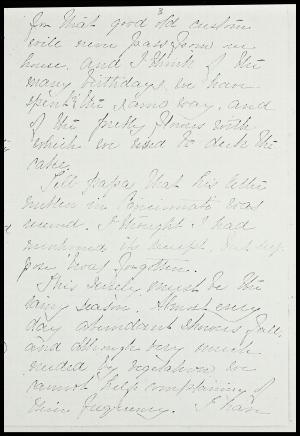 3
for that good old custom
will never pass from our
house. And I think of the
many birthdays we have
spent the same way, and
of the pretty flowers with
which we used to deck the
cake.
Tell papa that his letter
written in Cincinnati was
received. I thought I had
mentioned its receipt, but sup-
pose I have forgotten.
This surely must be the
rainy season. Almost every
day abundant showers fall,
and although very much
needed by vegetation we
cannot help complaining of
their frequency. I have